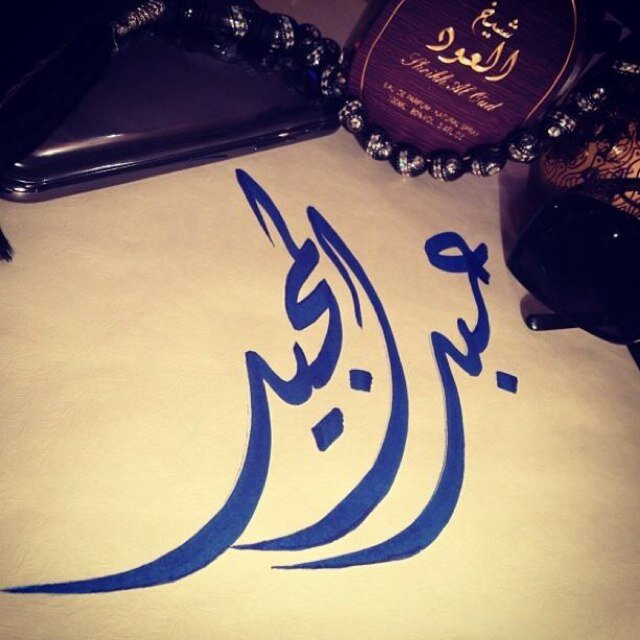 شيخ
العود
Sheikh Al Oud
EAU DE PARFUM NATURAL SPRAY
عبد المجيد